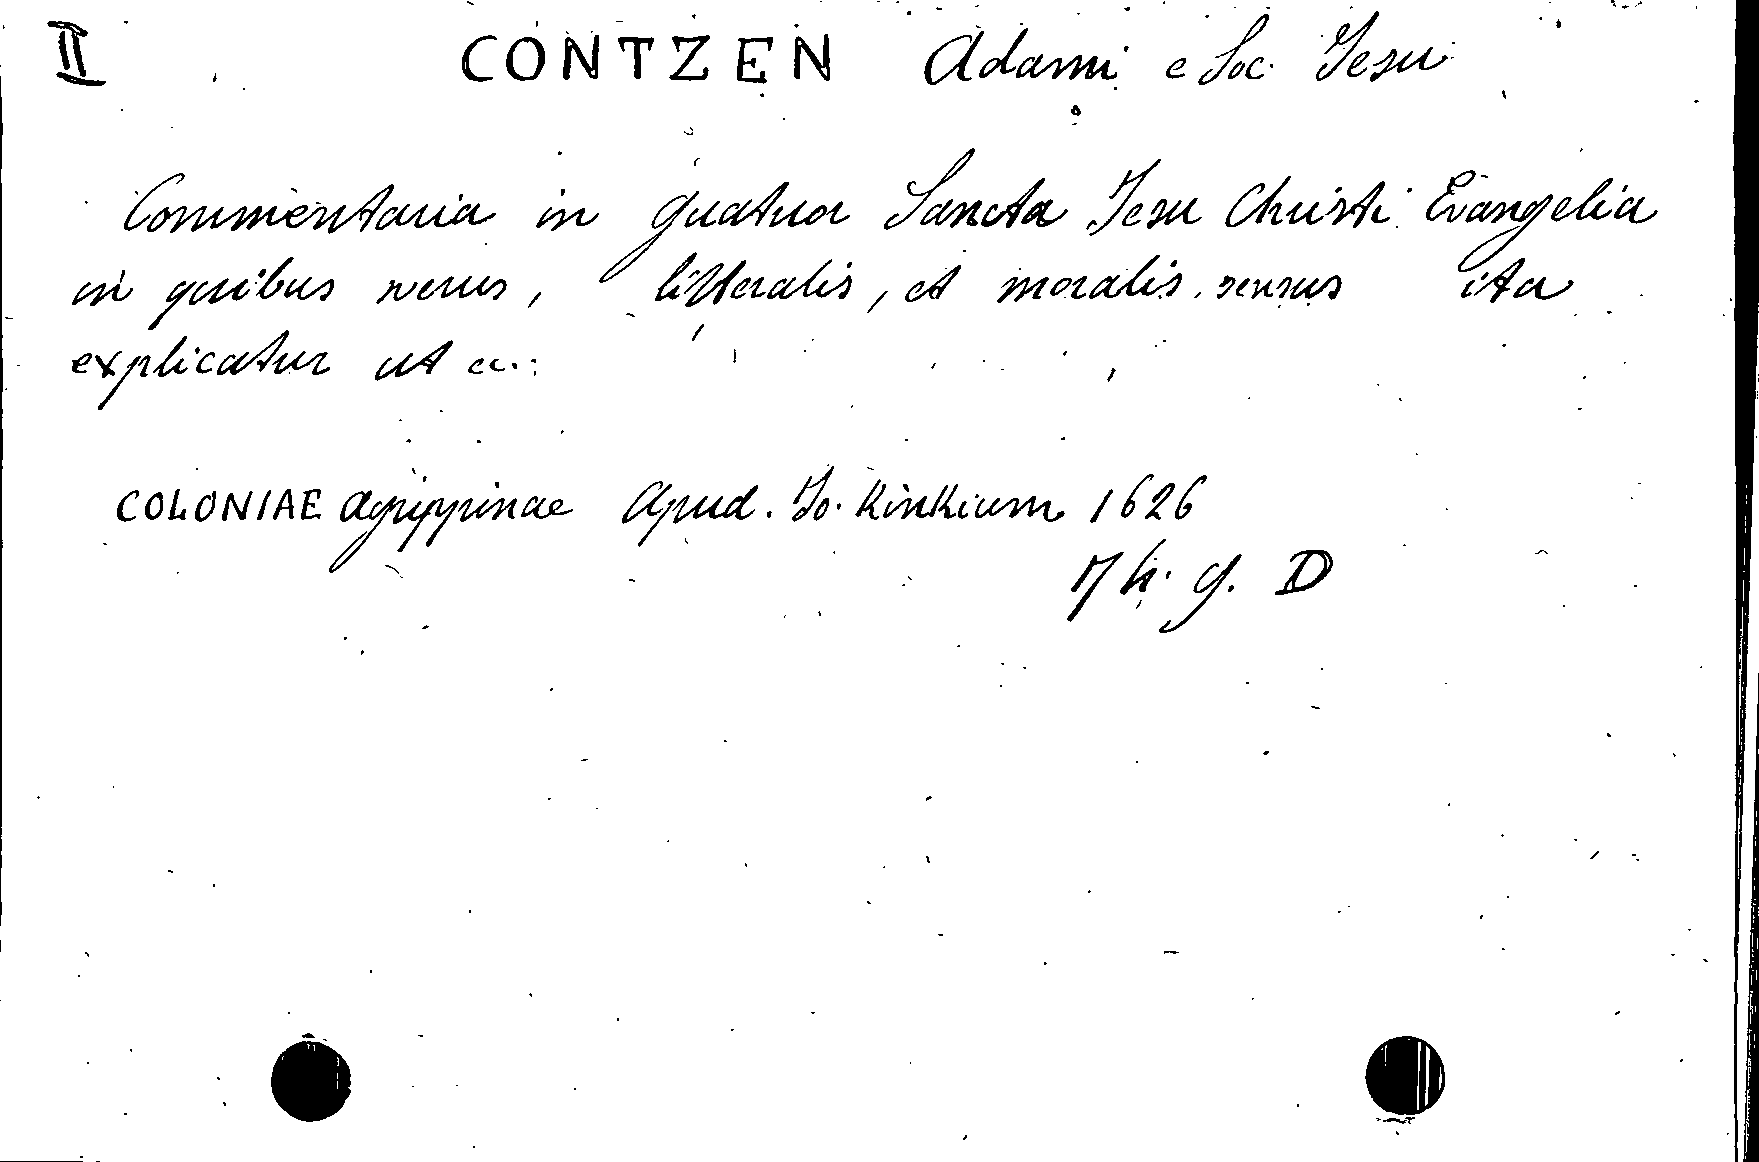 II CONTZEN Adami e Soc. Jesu
Commentaria in quatuor Sancta Jesu Christi Evangelia
in quibus verus, litteralis, et moralis sensus ita
explicatur ut
COLONIAE Agrippinae Apud. Jo. Kinkium 1626
h. g. D